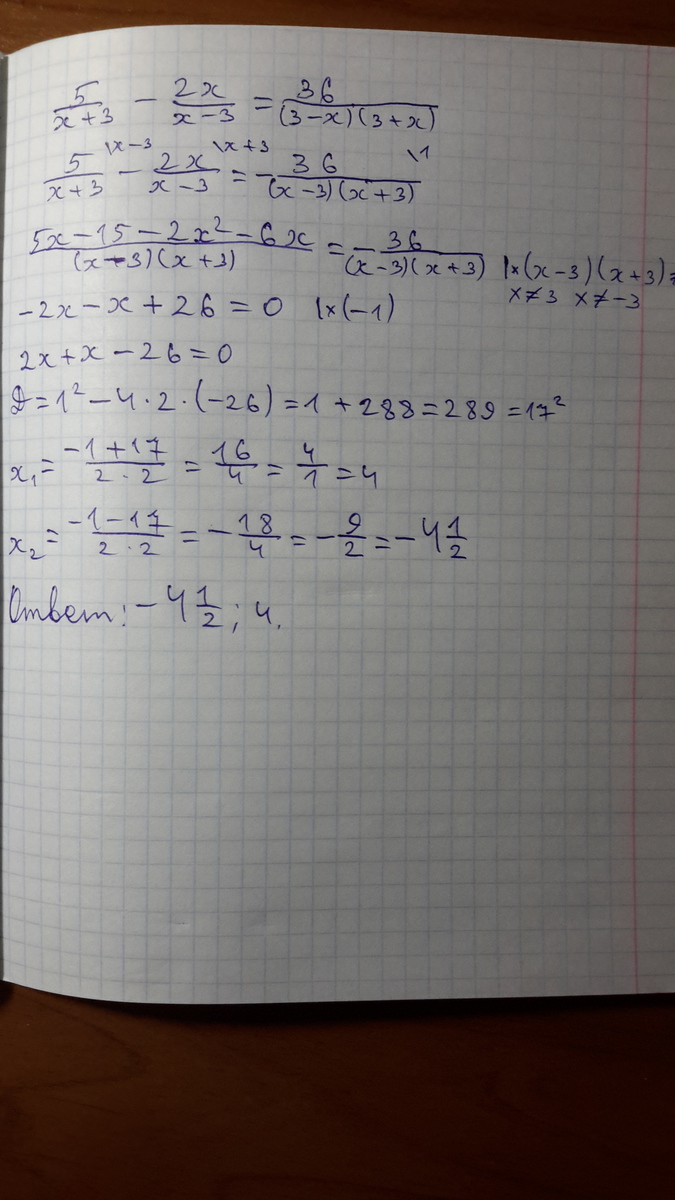 5/(x+3) − 2x/(x−3) = 36/((3−x)(3+x))
5/(x+3) \x−3 − 2x/(x−3) \x+3 = −36/((x−3)(x+3)) \1
(5x−15−2x²−6x)/((x−3)(x+3)) = −36/((x−3)(x+3)) |×(x−3)(x+3)≠
x≠3 x≠−3
−2x−x+26=0 |×(−1)
2x+x−26=0
D=1²−4·2·(−26)=1+288=289=17²
x₁=(−1+17)/(2·2)=16/4=4/1=4
x₂=(−1−17)/(2·2)=−18/4=−9/2=−4 1/2
Ответ: −4 1/2; 4.